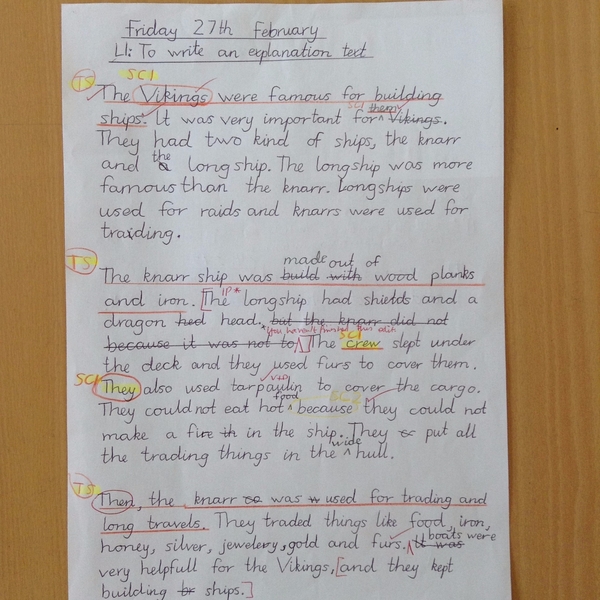 Friday 27th February
LI: To write an explanation text
SC1
TS The Vikings were famous for building
SC1 them
ships. It was very important for ^ Vikings.
They had two kind of ships, the knarr
and the a longship. The longship was more
famous than the knarr. Longships were
used for raids and knarrs were used for
traiding.
TS
made out of
The knarr ship was build with wood planks
IP*
and iron. [The longship had shields and a
dragon hed head. but the knarr did not
*you haven't finished this edit SC1
because it was not to ^] The crew slept under
the deck and they used furs to cover them.
SC1 They also used tarpaulin to cover the cargo.
food
They could not eat hot ^ because they could not
make a fire th in the ship. They or put all
wide
the trading things in the ^ hull.
TS
Then, the knarr was used for trading and
long travels. They traded things like food, iron,
boats were
honey, silver, jewelery, gold and furs. ^ It was
very helpfull for the Vikings, [and they kept
building br ships.]